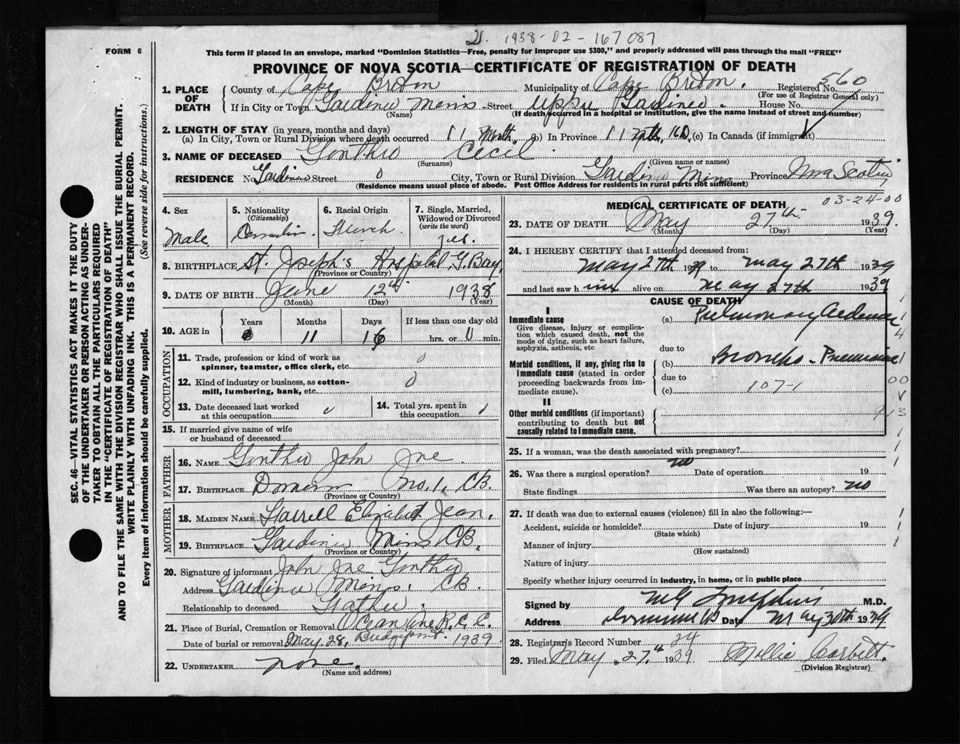 1938-02-167087
FORM 6
This form if placed in an envelope, marked "Dominion Statistics—Free, penalty for improper use $300," and properly addressed will pass through the mail "FREE"
PROVINCE OF NOVA SCOTIA—CERTIFICATE OF REGISTRATION OF DEATH
1. PLACE OF DEATH
County of Cape Breton Municipality of Cape Breton. Registered No. 560
(For use of Registrar General only)
If in City or Town Gardiner Mines Street Upper Gardiner. House No.
(Name) (If death occurred in a hospital or institution, give the name instead of street and number)
2. LENGTH OF STAY (in years, months and days)
(a) In City, Town or Rural Division where death occurred 11 Mths. (b) In Province 11 Mths. 16 D. (c) In Canada (if immigrant)
3. NAME OF DECEASED Gonthro Cecil
(Surname) (Given name or names)
RESIDENCE No. Gardiner Street 0 City, Town or Rural Division Gardiner Mines Province Nova Scotia
(Residence means usual place of abode. Post Office Address for residents in rural parts not sufficient)
4. Sex Male
5. Nationality (Citizenship) Canadian
6. Racial Origin French
7. Single, Married, Widowed or Divorced (write the word)
8. BIRTHPLACE St. Joseph's Hospital G. Bay,
(Province or Country)
9. DATE OF BIRTH June 12th 1938
(Month) (Day) (Year)
10. AGE in Years 0 Months 11 Days 16 If less than one day old
hrs. or 0 min.
OCCUPATION
11. Trade, profession or kind of work as spinner, teamster, office clerk, etc. 0
12. Kind of industry or business, as cotton-mill, lumbering, bank, etc. 0
13. Date deceased last worked at this occupation 0
14. Total yrs. spent in this occupation
15. If married give name of wife or husband of deceased
FATHER
16. NAME Gonthro John Joe
17. BIRTHPLACE Dominion No. 1, CB.
(Province or Country)
MOTHER
18. MAIDEN NAME Farrell Elizabeth Jean.
19. BIRTHPLACE Gardiner Mines CB.
(Province or Country)
20. Signature of informant John Joe Gonthro
Address Gardiner Mines. CB
Relationship to deceased Father.
21. Place of Burial, Cremation or Removal R.C.C. Bridgeport
Date of burial or removal May 28, 1939
22. UNDERTAKER none.
(Name and address)
MEDICAL CERTIFICATE OF DEATH 03-24-00
23. DATE OF DEATH May 27th 1939
(Month) (Day) (Year)
24. I HEREBY CERTIFY that I attended deceased from:
May 27th 1939 to May 27th 1939
and last saw him alive on May 27th 1939
CAUSE OF DEATH
I
Immediate cause
Give disease, injury or complication which caused death, not the mode of dying, such as heart failure, asphyxia, asthenia, etc
(a) Pulmonary Oedema
due to
Morbid conditions, if any, giving rise to immediate cause (stated in order proceeding backwards from immediate cause).
(b) Broncho-Pneumonia
due to
(c) 107-1
II
Other morbid conditions (if important) contributing to death but not causally related to immediate cause.
25. If a woman, was the death associated with pregnancy?
26. Was there a surgical operation? no Date of operation 19
State findings Was there an autopsy? no
27. If death was due to external causes (violence) fill in also the following:—
Accident, suicide or homicide? Date of injury 19
(State which)
Manner of injury
(How sustained)
Nature of injury
Specify whether injury occurred in industry, in home, or in public place
Signed by M.D.
Address Date May 30th 1939
28. Registrar's Record Number 24
29. Filed May. 27th 1939 Millie Corbett.
(Division Registrar)
SEC. 46—VITAL STATISTICS ACT MAKES IT THE DUTY OF THE UNDERTAKER OR PERSON ACTING AS UNDERTAKER TO OBTAIN ALL THE PARTICULARS REQUIRED IN THE "CERTIFICATE OF REGISTRATION OF DEATH"
AND TO FILE THE SAME WITH THE DIVISION REGISTRAR WHO SHALL ISSUE THE BURIAL PERMIT.
WRITE PLAINLY WITH UNFADING INK. THIS IS A PERMANENT RECORD.
Every item of information should be carefully supplied. (See reverse side for instructions.)